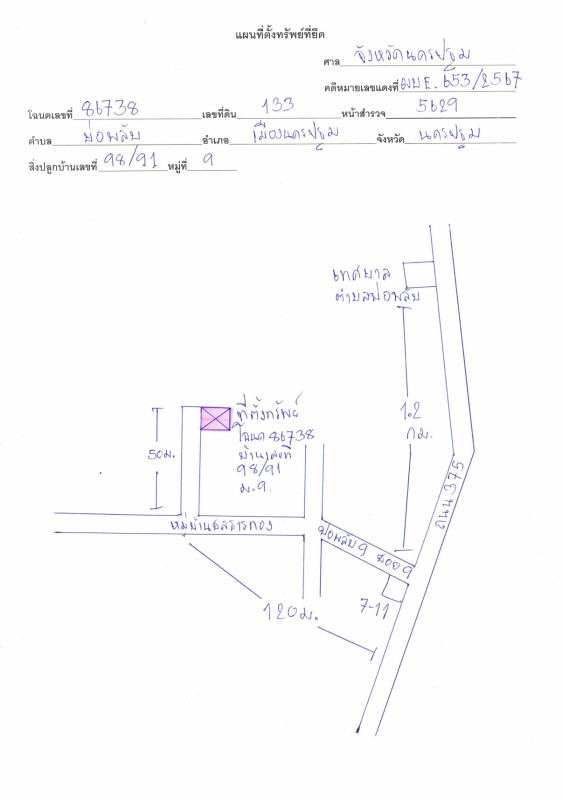 แผนที่ตั้งทรัพย์ที่ยึด
ศาล จังหวัดนครปฐม
คดีหมายเลขแดงที่ ผบE. 653/2567
โฉนดเลขที่ 86738 เลขที่ดิน 133 หน้าสำรวจ 5629
ตำบล บ่อพลับ อำเภอ เมืองนครปฐม จังหวัด นครปฐม
สิ่งปลูกบ้านเลขที่ 98/91 หมู่ที่ 9
เทศบาล
ตำบลบ่อพลับ
1.2
กม.
ที่ตั้งทรัพย์
โฉนด 86738
บ้านเลขที่
98/91
ม.9.
50ม.
ถนน 375
หมู่บ้านชลธารทอง
บ่อพลับ 9 ซอย 9
7-11
120ม.